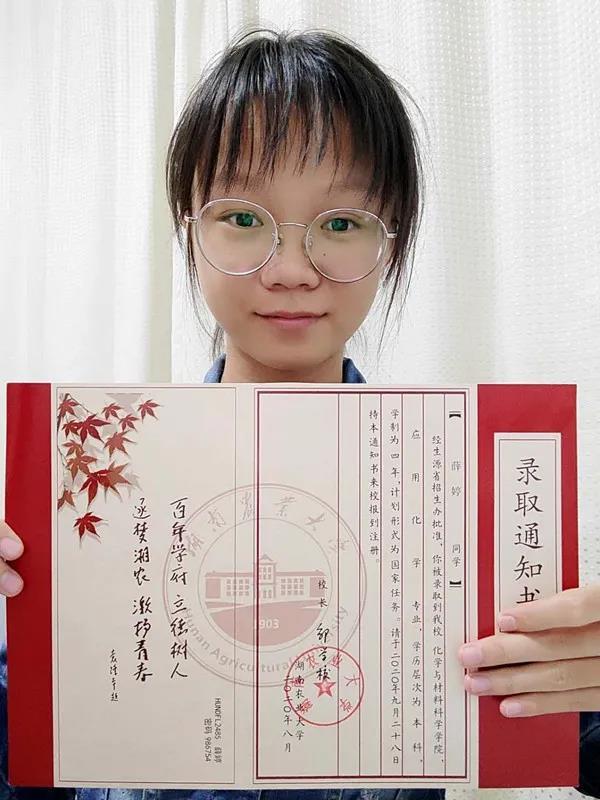 录取通知书
【薛婷 同学】
经生源省招生办批准,你被录取到我校 化学与材料科学学院,
应用化学 专业,学历层次为本科,
学制为四年,计划形式为国家任务。请于二〇二〇年九月二十八日
持本通知书来校报到注册。
校长
湖南农业大学
二〇二〇年八月
湖南农业大学
湖南农业大学
1903
Hunan Agricultural
百年学府 立德树人
逐梦湘农 激扬青春
袁隆平题
HUNDFL2485 薛婷
密码 986754